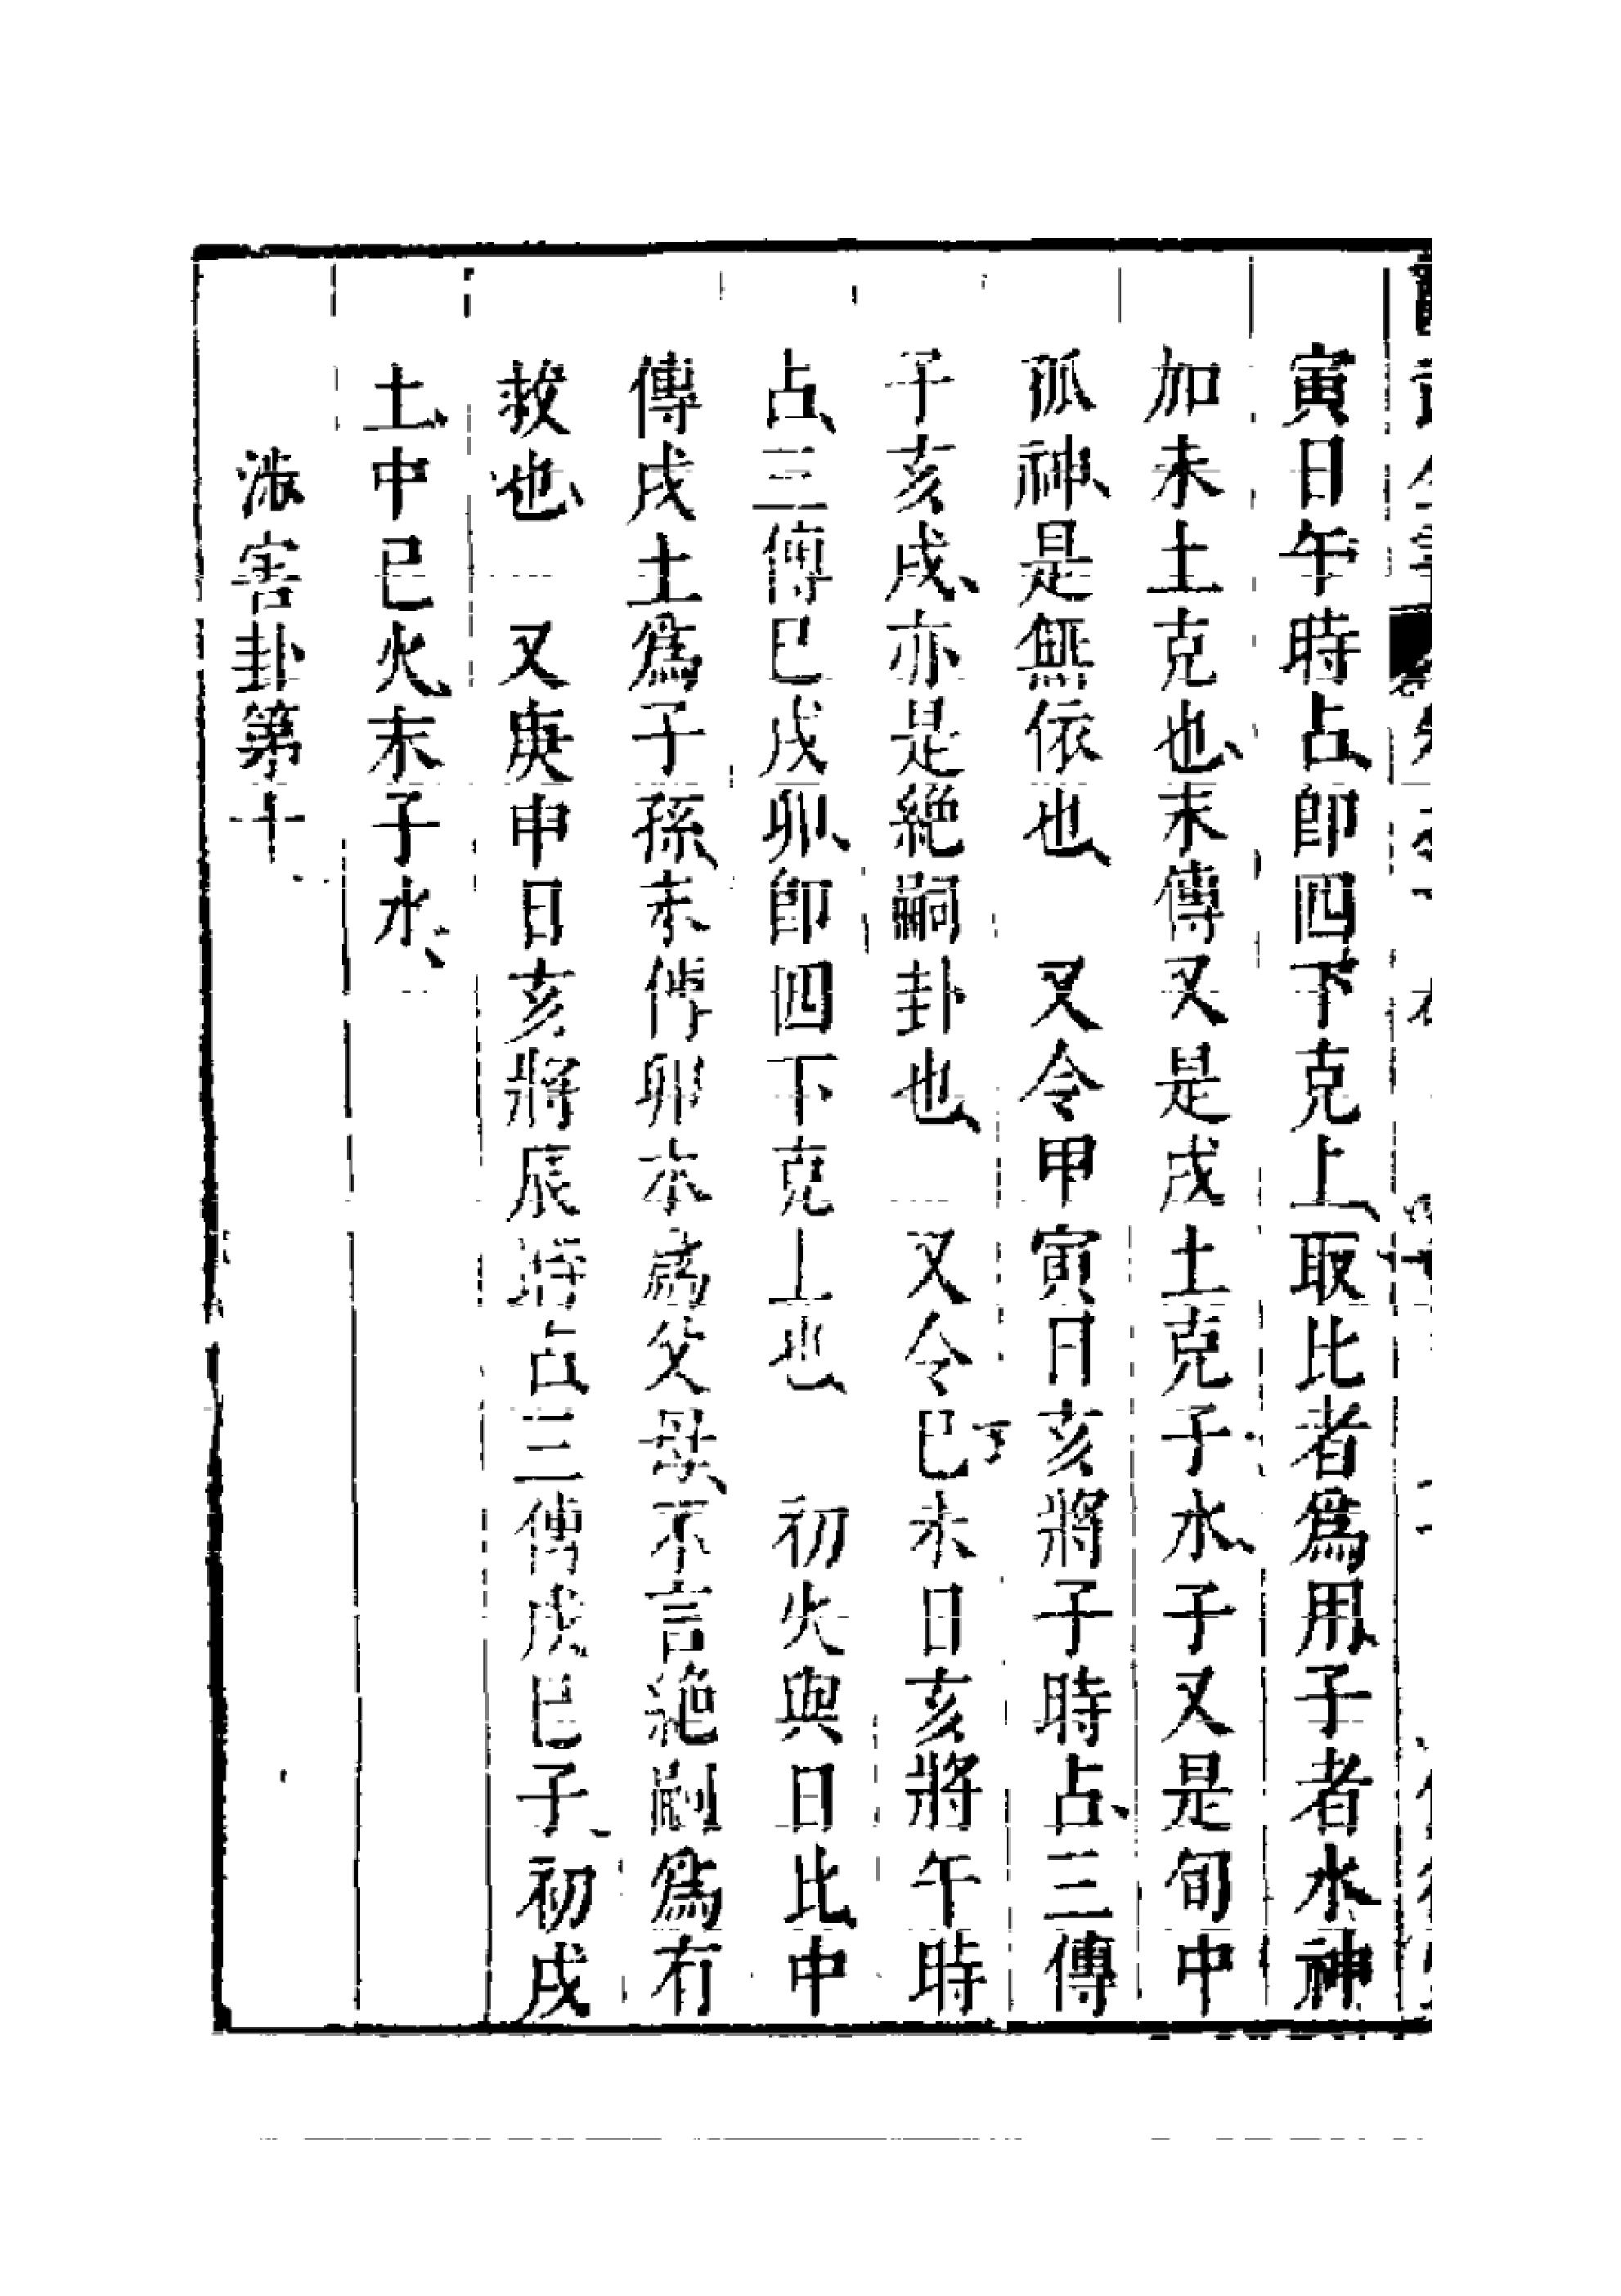 寅日午時占、卽四下克上、取比者爲用、子者水神
加未土克也、末傳又是戌土克子水、子又是旬中
孤神、是無依也、　又令甲寅日亥將子時占、三傳
子亥戌、亦是絶嗣卦也、　又令巳未日亥將午時
占、三傳巳戌卯、卽四下克上也、　初火與日比、中
傳戌土爲子孫、末傳卯木爲父母、不言絶嗣爲有
救也、　又庚申日亥將辰時占、三傳戌巳子、初戌
土、中巳火、末子水、
涉害卦第十